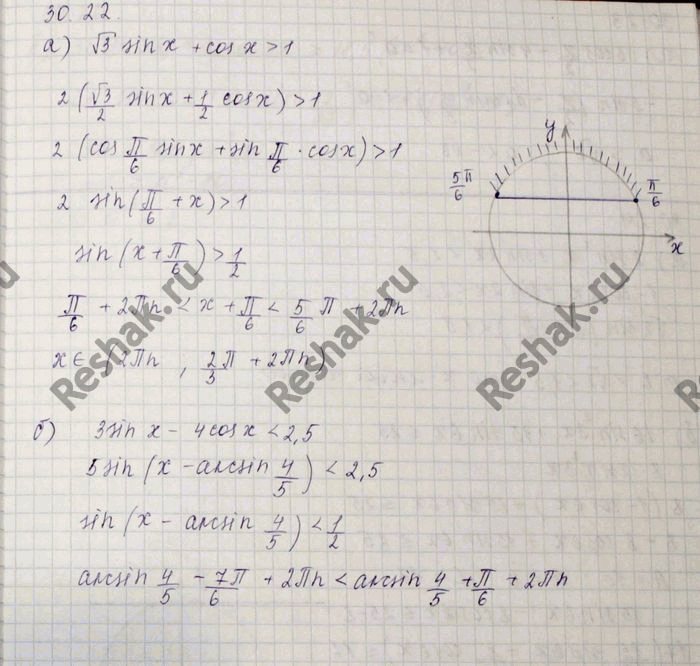 30.22.
а) √3 sin x + cos x > 1
2 (√3/2 sin x + 1/2 cos x) > 1
2 (cos π/6 sin x + sin π/6 · cos x) > 1
2 sin (π/6 + x) > 1
sin (x + π/6) > 1/2
π/6 + 2πn < x + π/6 < 5/6 π + 2πn
x ∈ (2πn , 2/3 π + 2πn)
y
5/6 π
π/6
x
б) 3 sin x - 4 cos x < 2,5
5 sin (x - arcsin 4/5) < 2,5
sin (x - arcsin 4/5) < 1/2
arcsin 4/5 - 7π/6 + 2πn < arcsin 4/5 + π/6 + 2πn
Reshak.ru
Reshak.ru
Reshak.ru
Reshak.ru